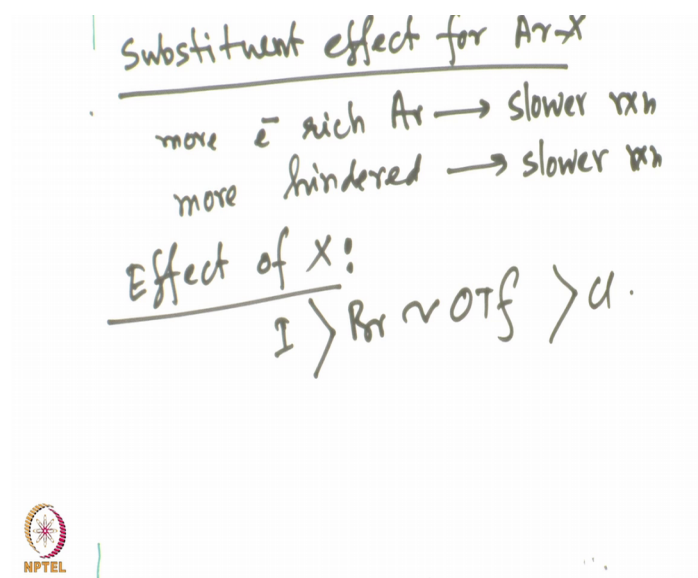 Substituent effect for Ar-X
more ē rich Ar → slower rxn
more hindered → slower rxn
Effect of X:
I > Br ~ OTf > Cl.
NPTEL